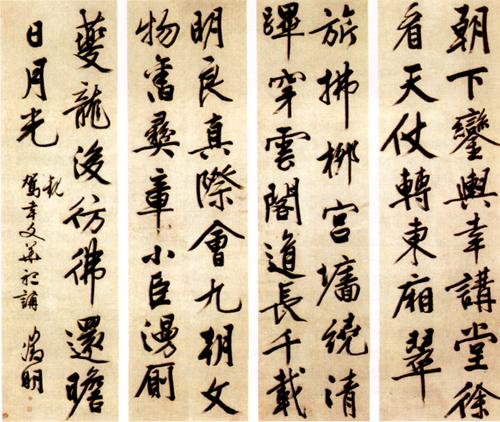 朝下鑾輿幸講堂徐
看天仗轉東廂翠
旂拂柳宮墻繞清
蹕穿雲閣道長千載
明良真際會九朝文
物舊彝章小臣漫厠
夔龍後彷彿還瞻
日月光
駕幸文華祀講
徵明